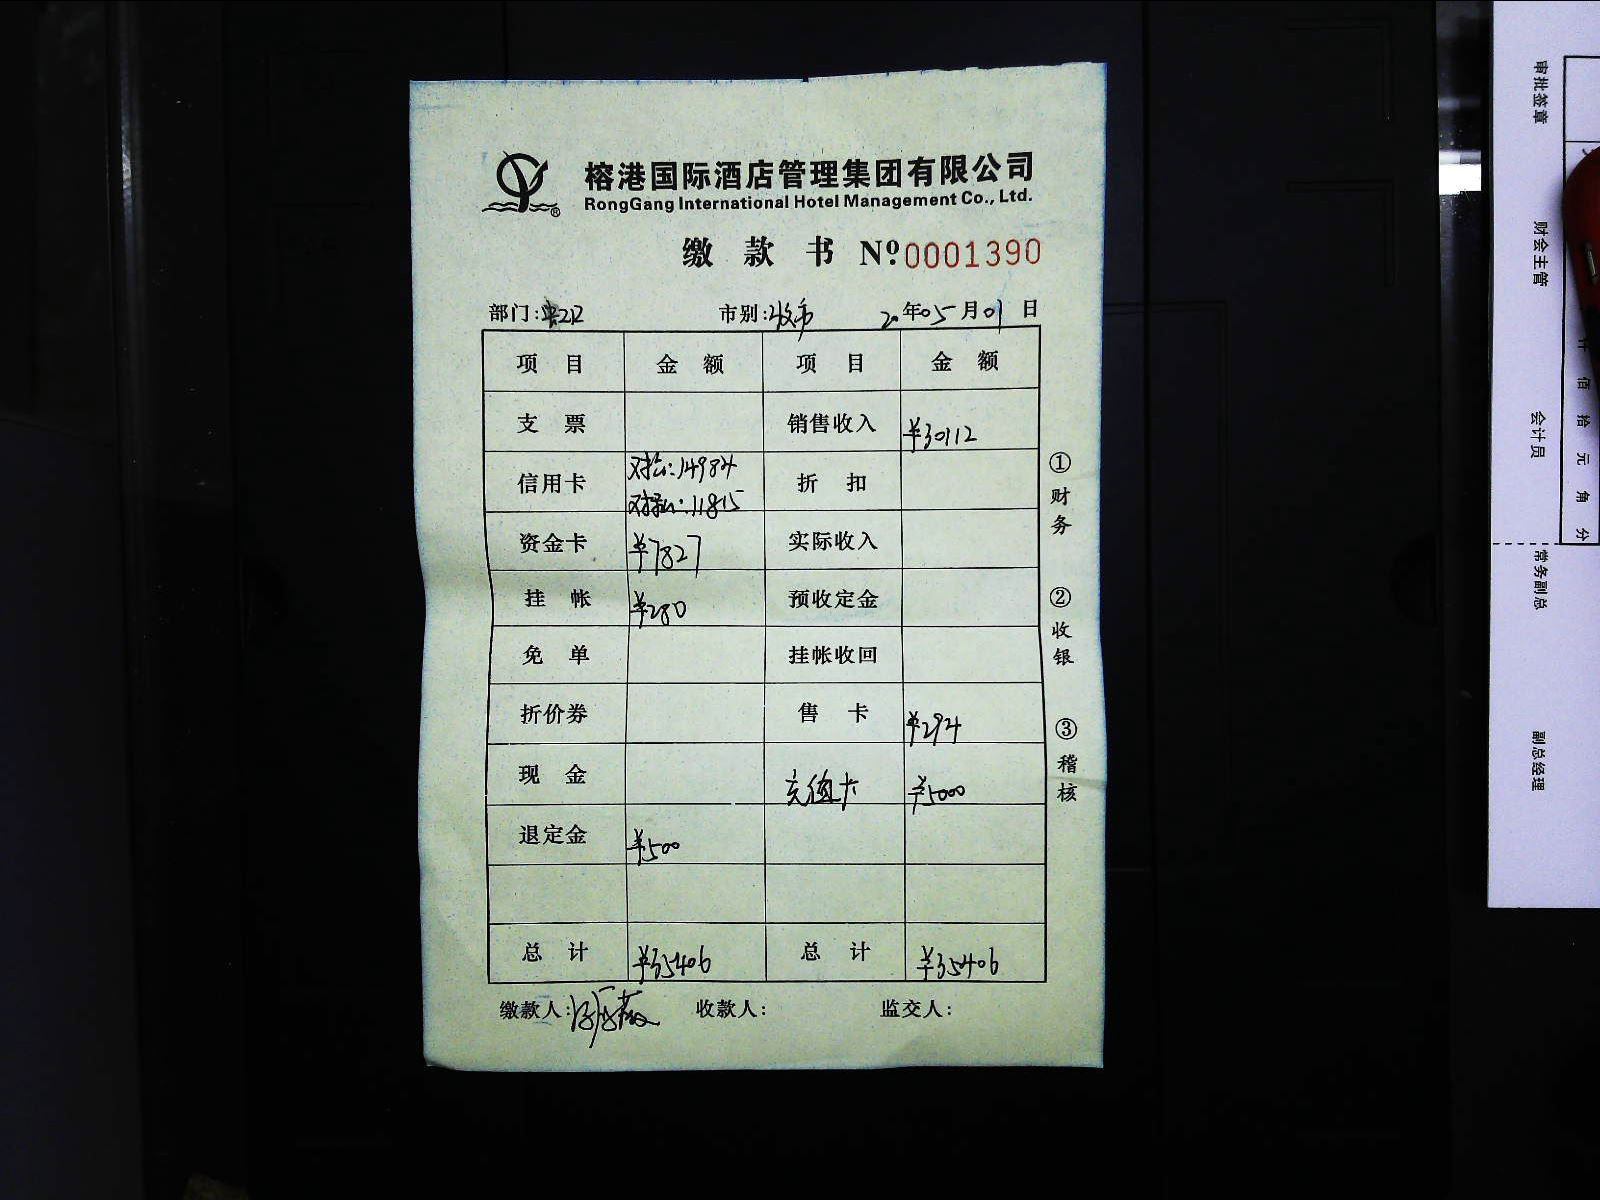 榕港国际酒店管理集团有限公司
RongGang International Hotel Management Co., Ltd.
缴款书 Nº:0001390
部门: 市别:收市 20年05月01日
项目 金额 项目 金额
支票 销售收入 ¥30112
信用卡 对公:14984 对私:11815 折扣
资金卡 ¥7827 实际收入
挂帐 ¥280 预收定金
免单 挂帐收回
折价券 售卡 ¥294
现金 充值卡 ¥5000
退定金 ¥500
总计 ¥35406 总计 ¥35406
缴款人: 收款人: 监交人:
①财务
②收银
③稽核
审批签章
财会主管
会计员
常务副总
副总经理
佰拾元角分